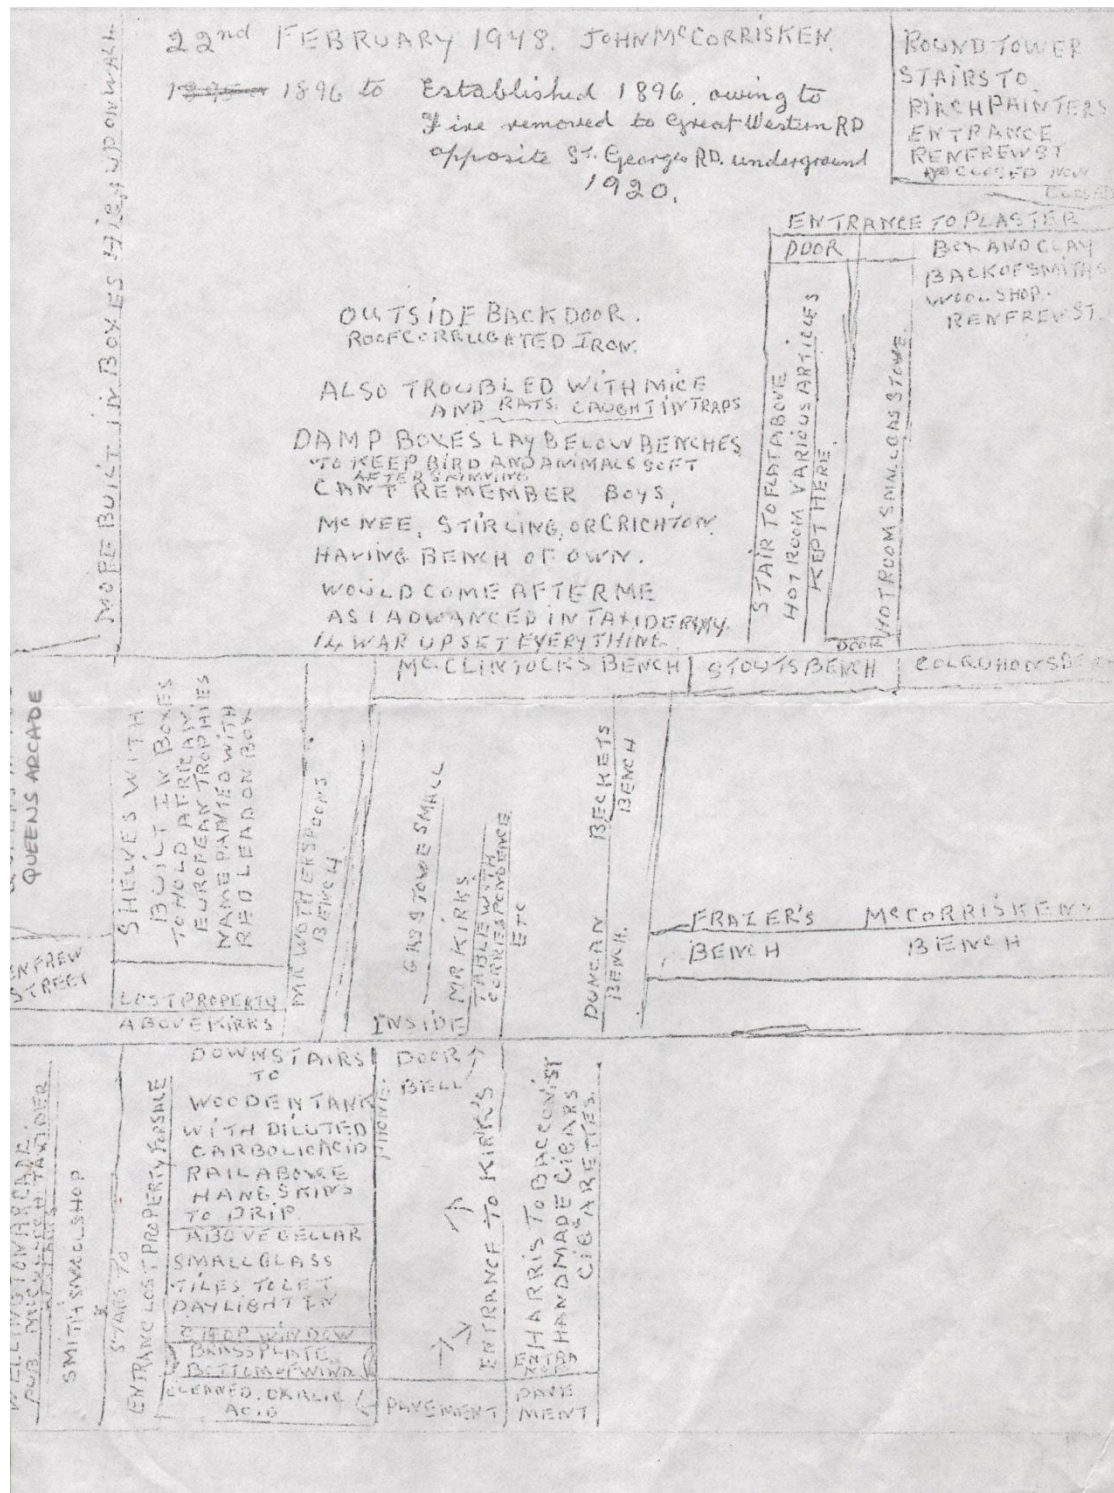 22nd FEBRUARY 1948. JOHN McCORRISKEN.
1896 to Established 1896, owing to
Fire removed to Great Western RD
opposite St. Georges RD. underground
1920.
ROUND TOWER
STAIRS TO
BIRCH PAINTERS
ENTRANCE
RENFREW ST
CLOSED NOW
CLOSED
ENTRANCE TO PLASTER
BOX AND CLAY
BACK OF SMITHS
WOOL SHOP.
RENFREW ST.
DOOR
STAIR TO FLAT ABOVE
HOT ROOM VARIOUS ARTICLES
KEPT HERE.
HOT ROOM SMALL GAS STOVE.
DOOR
MORE BUILT IN BOXES HIGH UP ON WALL
OUTSIDE BACK DOOR.
ROOF CORRUGATED IRON.
ALSO TROUBLED WITH MICE
AND RATS. CAUGHT IN TRAPS
DAMP BOXES LAY BELOW BENCHES
TO KEEP BIRD AND ANIMALS SOFT
AFTER SKINNING
CANT REMEMBER BOYS,
McNEE, STIRLING, OR CRICHTON.
HAVING BENCH OF OWN.
WOULD COME AFTER ME
AS I ADVANCED IN TAXIDERMY.
14 WAR UPSET EVERYTHING.
McCLINTOCKS BENCH
STOUTS BENCH
COLQUHONS
QUEENS ARCADE
SHELVES WITH
BUILT IN BOXES
TO HOLD AFRICAN,
EUROPEAN TROPHIES
NAME PAINTED WITH
RED LEAD ON BOX
MR WOTHERSPOONS
BENCH
GAS STOVE SMALL
MR KIRKS
TABLE WITH
CORRESPONDENCE
ETC
BECKETS
BENCH
DUNCAN
BENCH.
FRAZER'S
BENCH
McCORRISKENS
BENCH
RENFREW
STREET
LOST PROPERTY
ABOVE KIRKS
INSIDE
WELLINGTON ARCADE.
SMITH'S WOOL SHOP
STAIRS TO
ENTRANCE LOST PROPERTY FOR SALE
DOWNSTAIRS
TO
WOODEN TANK
WITH DILUTED
CARBOLIC ACID
RAIL ABOVE
HANG SKINS
TO DRIP.
ABOVE CELLAR
SMALL GLASS
TILES TO LET
DAYLIGHT IN
SHOP WINDOW
BRASS PLATE
BOTTOM OF WIND
CLEANED. OXALIC
ACID
PHONE.
DOOR
BELL
ENTRANCE TO KIRK'S
PAVEMENT
HARRIS TOBACCONIST
HANDMADE CIGARS
CIGARETTES.
PAVE
MENT